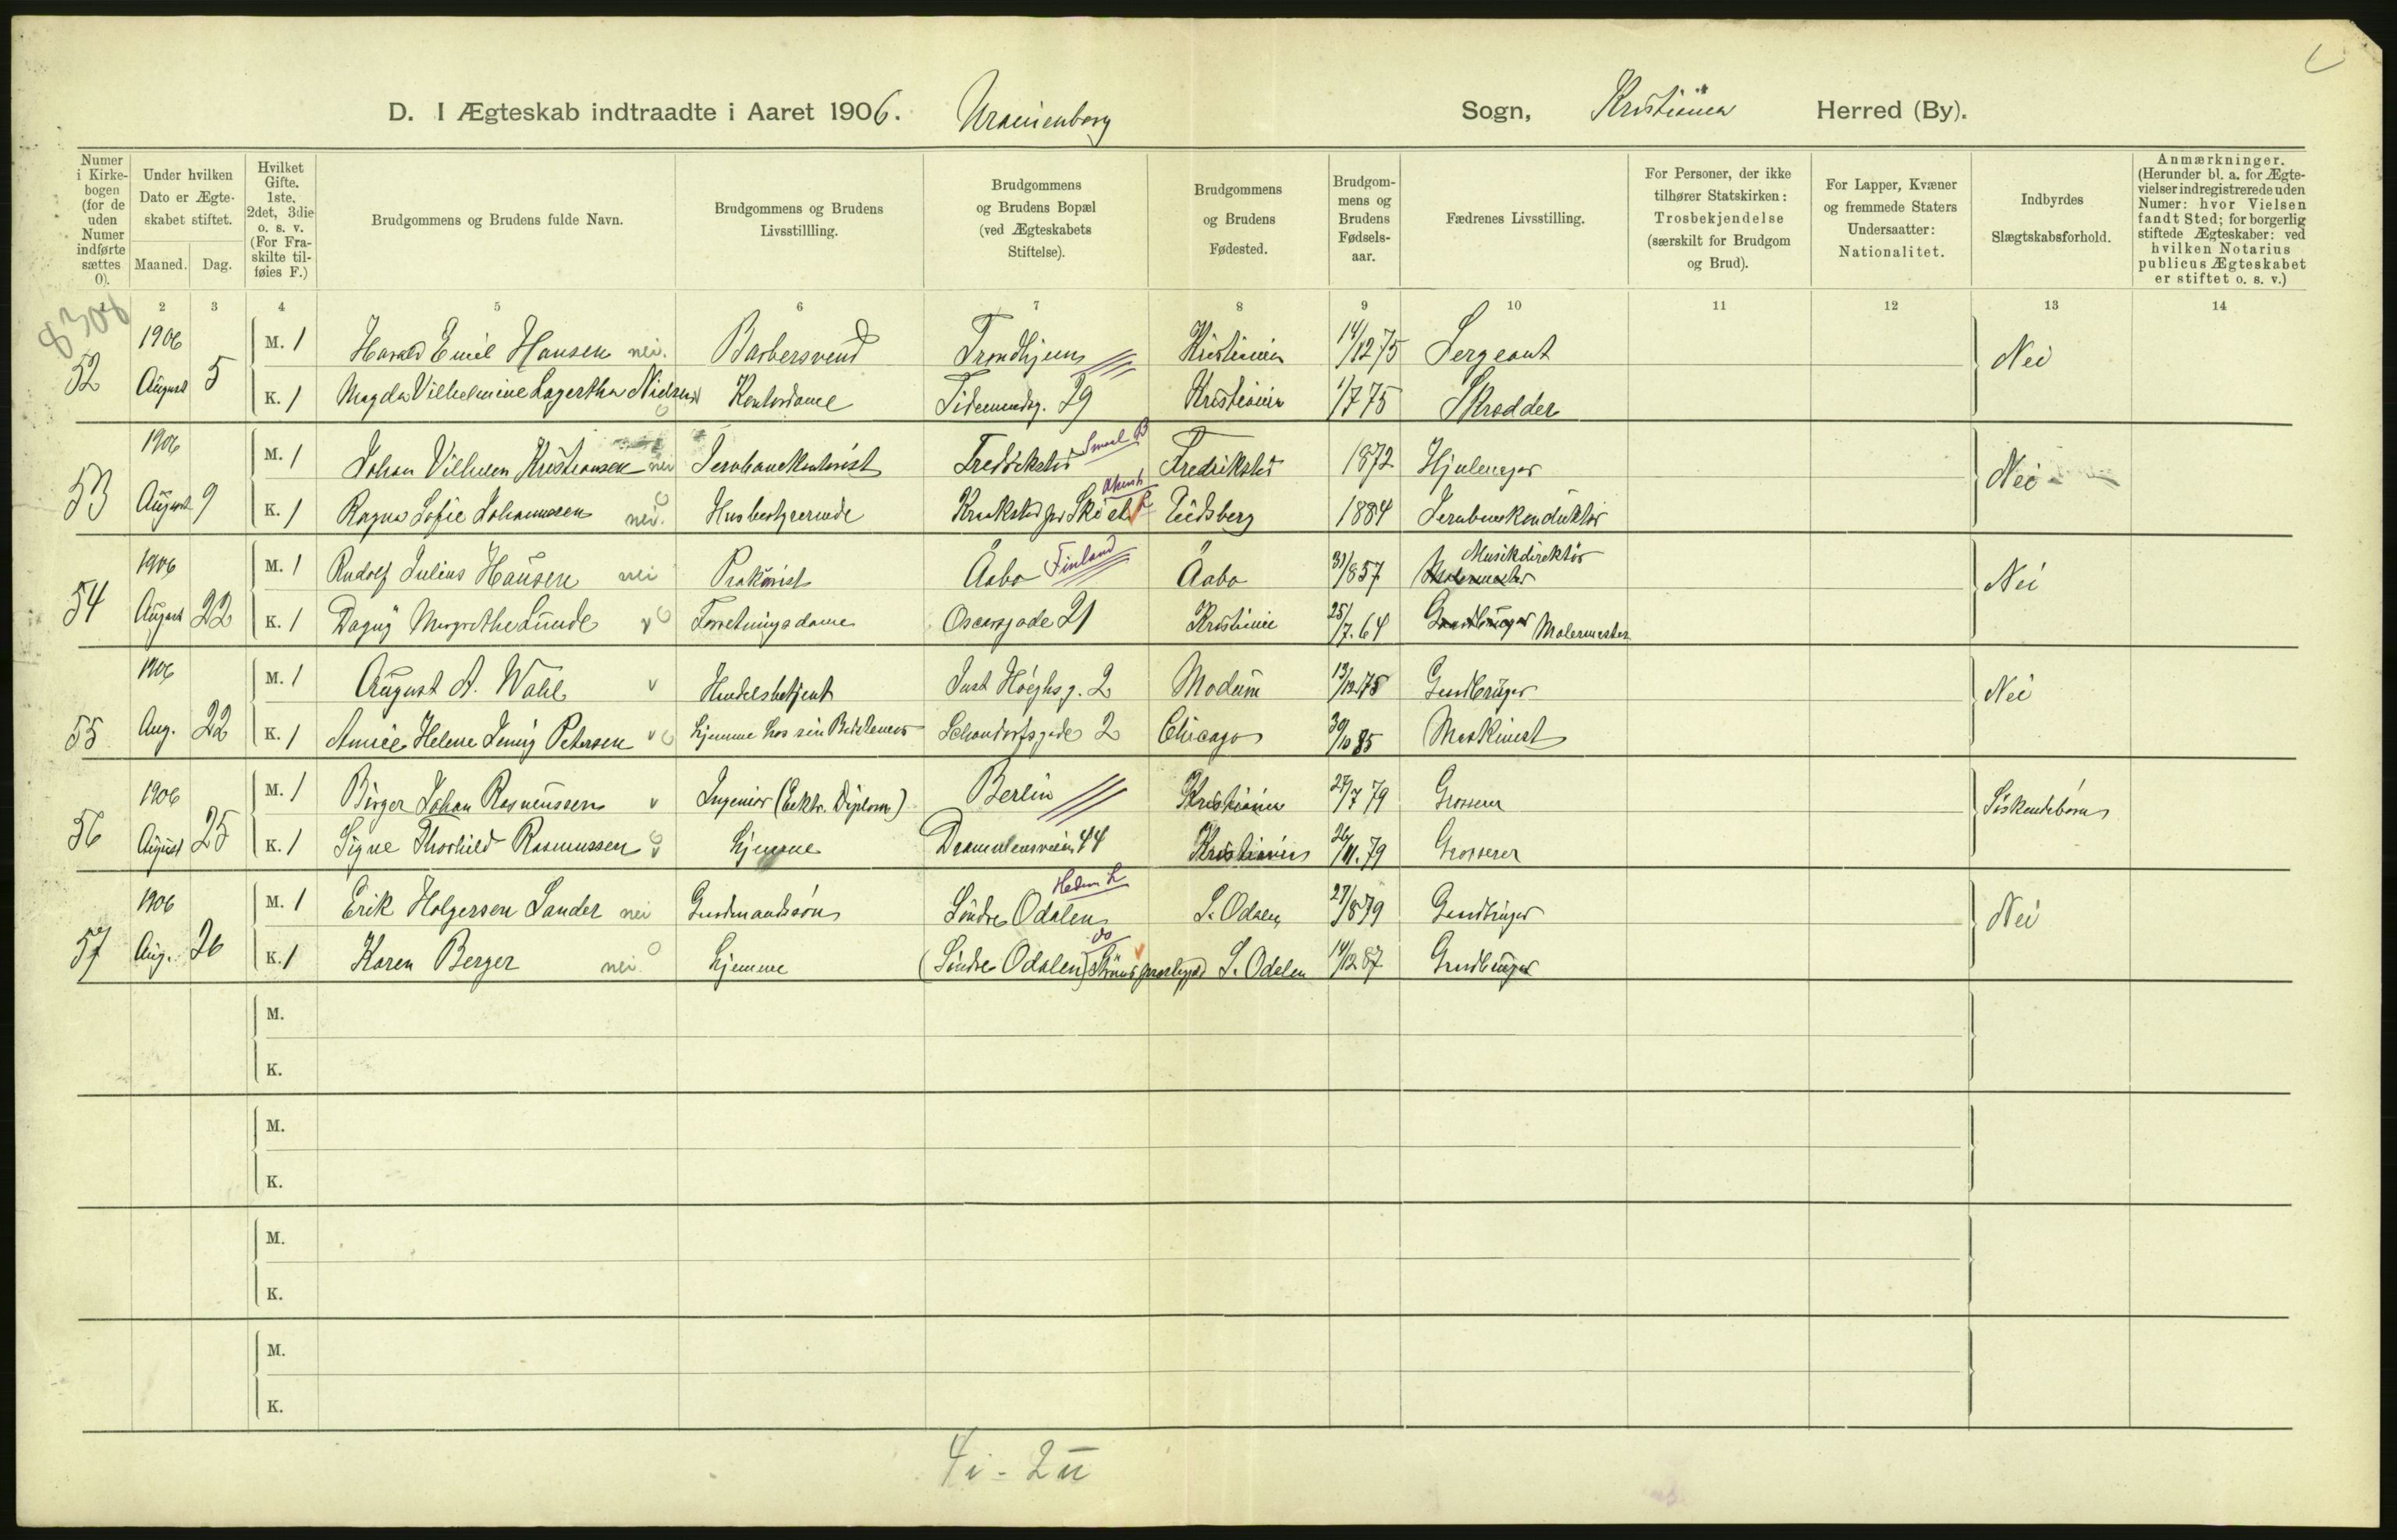 D. I Ægteskab indtraadte i Aaret 1906. Uranienborg Sogn, Kristiania Herred (By).
Numer i Kirkebogen (for de uden Numer indførte sættes 0).
Under hvilken Dato er Ægteskabet stiftet.
Maaned. Dag.
Hvilket Gifte. 1ste, 2det, 3die o. s. v. (For Fraskilte tilføies F.)
Brudgommens og Brudens fulde Navn.
Brudgommens og Brudens Livsstillling.
Brudgommens og Brudens Bopæl (ved Ægteskabets Stiftelse).
Brudgommens og Brudens Fødested.
Brudgommens og Brudens Fødselsaar.
Fædrenes Livsstilling.
For Personer, der ikke tilhører Statskirken: Trosbekjendelse (særskilt for Brudgom og Brud).
For Lapper, Kvæner og fremmede Staters Undersaatter: Nationalitet.
Indbyrdes Slægtskabsforhold.
Anmærkninger. (Herunder bl. a. for Ægtevielser indregistrerede uden Numer: hvor Vielsen fandt Sted; for borgerlig stiftede Ægteskaber: ved hvilken Notarius publicus Ægteskabet er stiftet o. s. v.)
1 2 3 4 5 6 7 8 9 10 11 12 13 14
8308
52 1906 August 5 M. 1 Harald Emil Hansen nei. Barbersvend Trondhjem Kristiania 14/12 75 Sergeant Nei
K. 1 Magda Vilhelmine Lagertha Nielsen Kontordame Tidemandsg. 29 Kristiania 1/7 75 Skrædder
53 1906 August 9 M. 1 Johan Vilhelm Kristiansen nei Jernbanekontorist Fredrikstad Smaal. B Fredrikstad 1872 Hjuleneger Nei
K. 1 Ragna Sofie Johannesen nei. Husbestyrerinde Kraakstad pr Ski st. Akersh L Eidsberg 1884 Jernbanekonduktør
54 1906 August 22 M. 1 Rudolf Julius Hausen nei Prokurist Åabo Finland Åabo 31/8 57 Malermester Musikdirektør Nei
K. 1 Dagny Margrethe Lunde v Forretningsdame Oscarsgade 21 Kristiania 25/7. 64 Gaardbruger Malermester
55 1906 Aug. 22 M. 1 August A. Wahl v Handelsbetjent Just Høeghsg. 2 Modum 13/12 78 Gaardbruger Nei
K. 1 Helene Jenny Petersen v hjemme hos sin Schandorfsgade 2 Chicago 30/10 85 Maskinist
56 1906 August 25 M. 1 Birger Johan Rasmussen v Ingeniør (Elektr. Diplom.) Berlin Kristiania 27/7 79 Grosserer Söskendebörn
K. 1 Signe Thorhild Rasmussen v hjemme Drammensveien 44 Kristiania 26/11. 79 Grosserer
57 1906 Aug. 26 M. 1 Erik Holgersen Sander nei Gaardmandssøn Søndre Odalen Hedm L S. Odalen 27/8 79 Gaardbruger Nei
K. 1 Karen Berger nei. hjemme (Søndre Odalen) do S. Odalen 14/12 87 Gaardbruger
M.
K.
M.
K.
M.
K.
M.
K.
4i - 2u